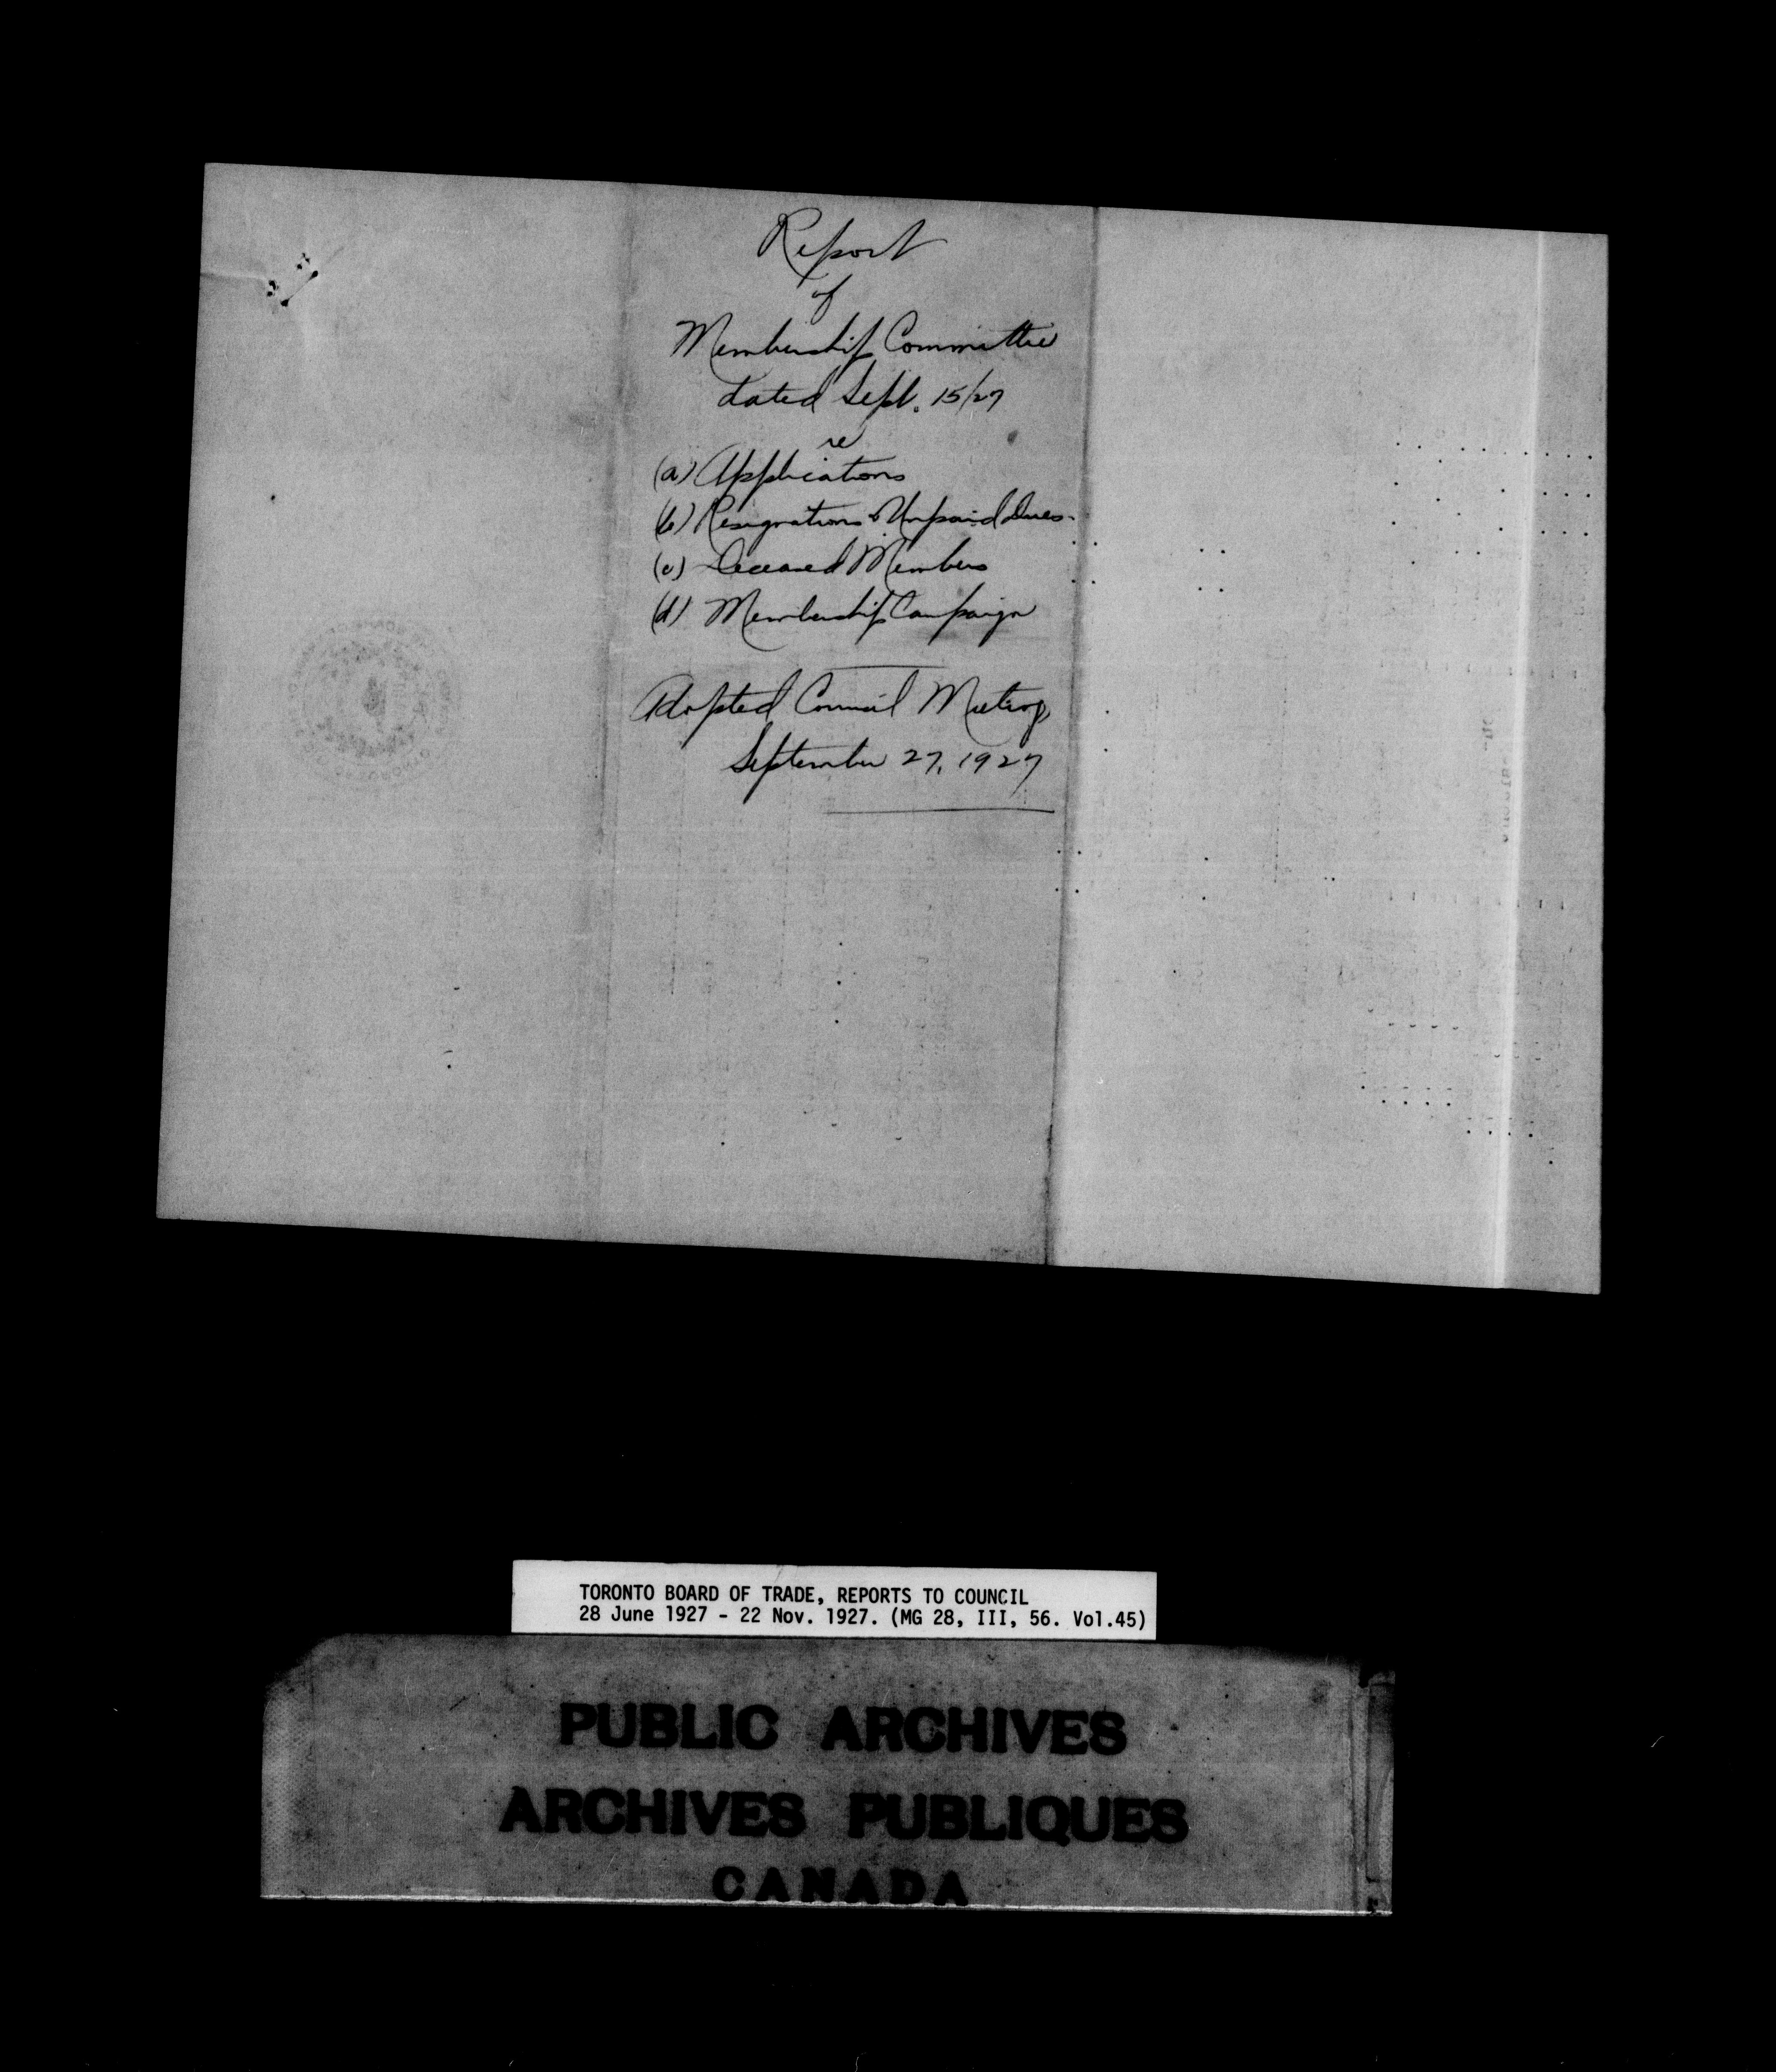 Report
of
Membership Committee
dated Sept. 15/27
re
(a) Applications
(b) Resignations & Unpaid Dues.
(c) Deceased Members
(d) Membership Campaign
Adopted Council Meeting
September 27, 1927
TORONTO BOARD OF TRADE, REPORTS TO COUNCIL
28 June 1927 - 22 Nov. 1927. (MG 28, III, 56. Vol.45)
PUBLIC ARCHIVES
ARCHIVES PUBLIQUES
CANADA